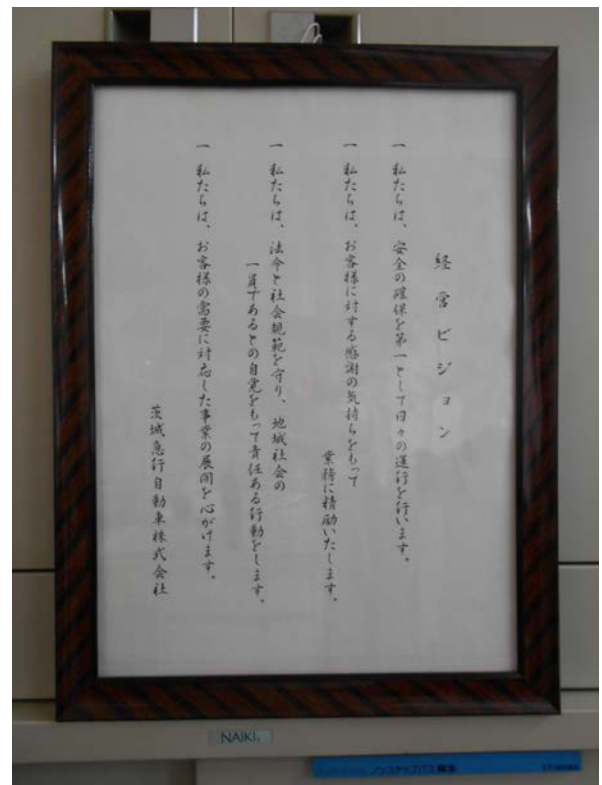 経営ビジョン
一 私たちは、安全の確保を第一として日々の運行を行います。
一 私たちは、お客様に対する感謝の気持ちをもって
業務に精励いたします。
一 私たちは、法令と社会規範を守り、地域社会の
一員であるとの自覚をもって責任ある行動をします。
一 私たちは、お客様の需要に対応した事業の展開を心がけます。
茨城急行自動車株式会社
NAIKI
ノンステップバス